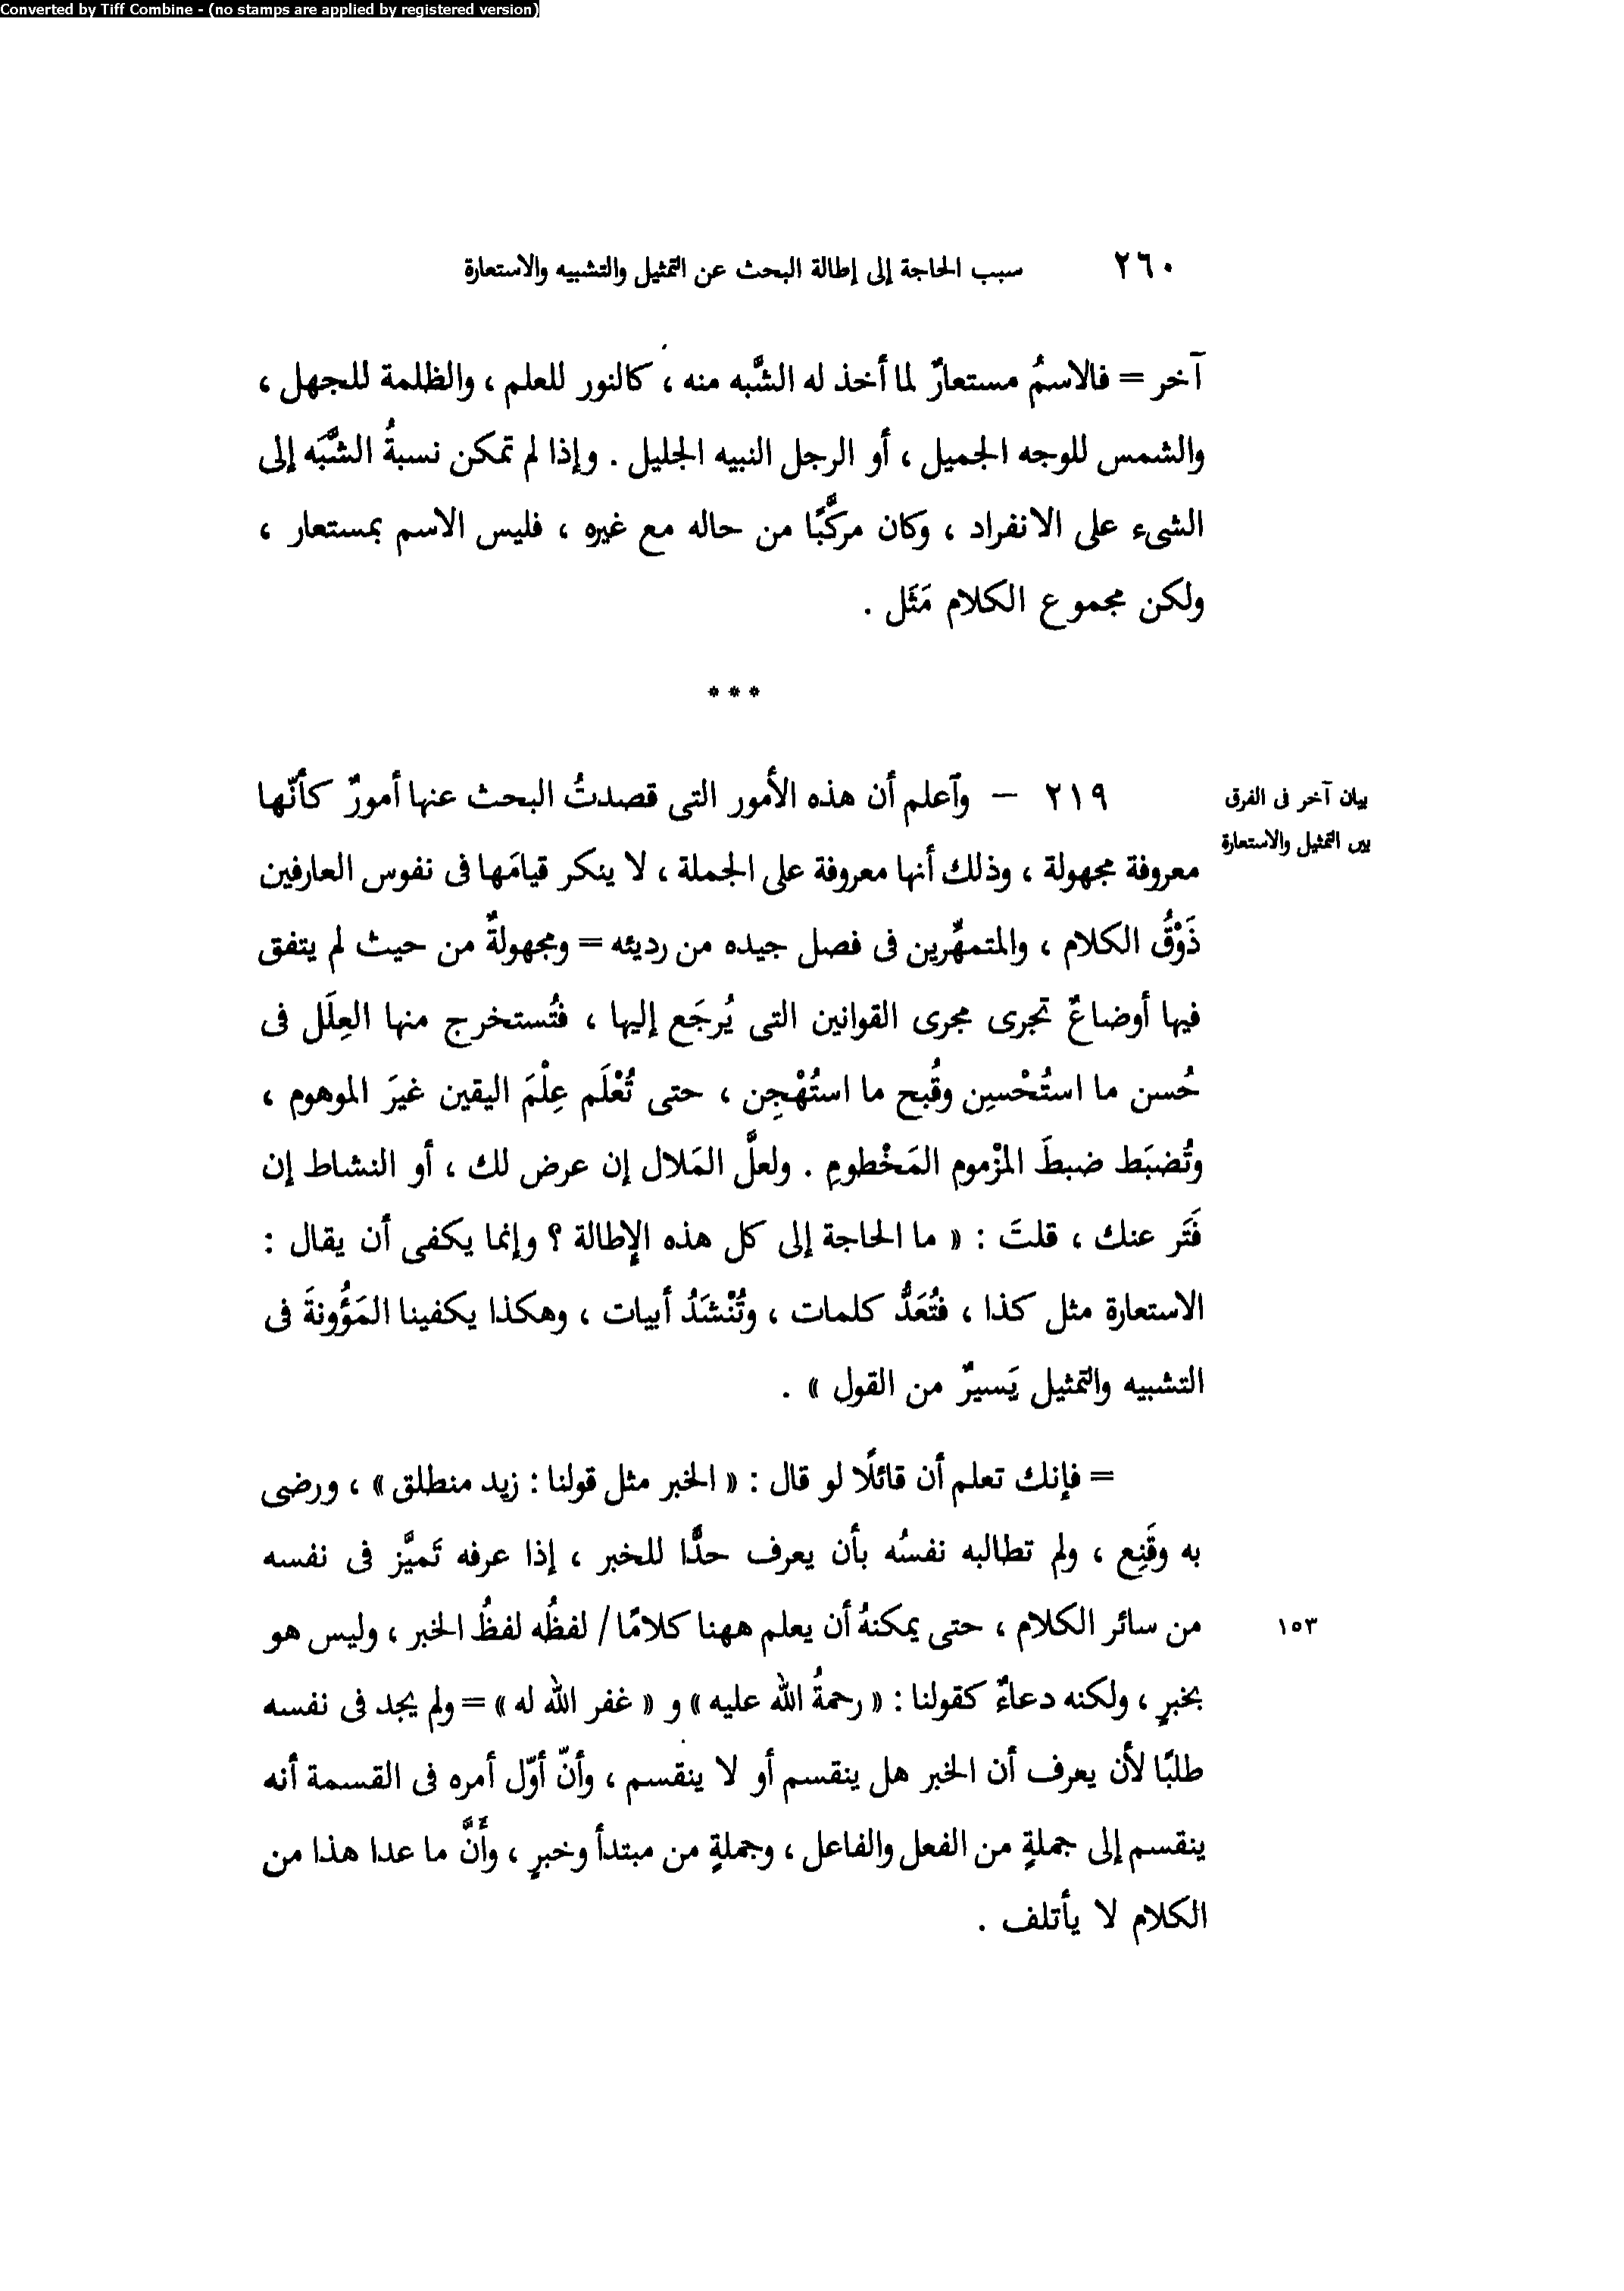 Converted by Tiff Combine - (no stamps are applied by registered version)
٢٦٠ سبب الحاجة إلى إطالة البحث عن التمثيل والتشبيه والاستعارة
آخر = فالاسمُ مستعارٌ لما أخذ له الشَّبه منه ، كالنور للعلم ، والظلمة للجهل ،
والشمس للوجه الجميل ، أو الرجل النبيه الجليل . وإذا لم تمكن نسبةُ الشَّبَه إلى
الشىء على الانفراد ، وكان مركَّبًا من حاله مع غيره ، فليس الاسم بمستعار ،
ولكن مجموع الكلام مَثَل .
* * *
بيان آخر فى الفرق
بين التمثيل والاستعارة
٢١٩ – وٱعلم أن هذه الأمور التى قصدتُ البحث عنها أمورٌ كأنّها
معروفة مجهولة ، وذلك أنها معروفة على الجملة ، لا ينكر قيامَها فى نفوس العارفين
ذَوْقُ الكلام ، والمتمهِّرين فى فصل جيده من رديئه = ومجهولةٌ من حيث لم يتفق
فيها أوضاعٌ تجرى مجرى القوانين التى يُرجَع إليها ، فتُستخرج منها العِلَل فى
حُسن ما استُحْسِن وقُبح ما استُهْجِن ، حتى تُعْلَم عِلْمَ اليقين غيرَ الموهوم ،
وتُضبَط ضبطَ المزْموم المَخْطومِ . ولعلَّ المَلال إن عرض لك ، أو النشاط إن
فَتَر عنك ، قلتَ : « ما الحاجة إلى كل هذه الإطالة ؟ وإنما يكفى أن يقال :
الاستعارة مثل كذا ، فتُعَدُّ كلمات ، وتُنْشَدُ أبيات ، وهكذا يكفينا المَؤُونةَ فى
التشبيه والتمثيل يَسيرٌ من القول » .
= فإنك تعلم أن قائلًا لو قال : « الخبر مثل قولنا : زيد منطلق » ، ورضى
به وقَنِع ، ولم تطالبه نفسُه بأن يعرف حدًّا للخبر ، إذا عرفه تَميَّز فى نفسه
من سائر الكلام ، حتى يمكنهُ أن يعلم ههنا كلامًا / لفظُه لفظُ الخبر ، وليس هو
١٥٣
بخبرٍ ، ولكنه دعاءٌ كقولنا : « رحمةُ الله عليه » و « غفر الله له » = ولم يجد فى نفسه
طلبًا لأن يعرف أن الخبر هل ينقسم أو لا ينقسم ، وأنّ أوّل أمره فى القسمة أنه
ينقسم إلى جملةٍ من الفعل والفاعل ، وجملةٍ من مبتدأ وخبرٍ ، وأنَّ ما عدا هذا من
الكلام لا يأتلف .